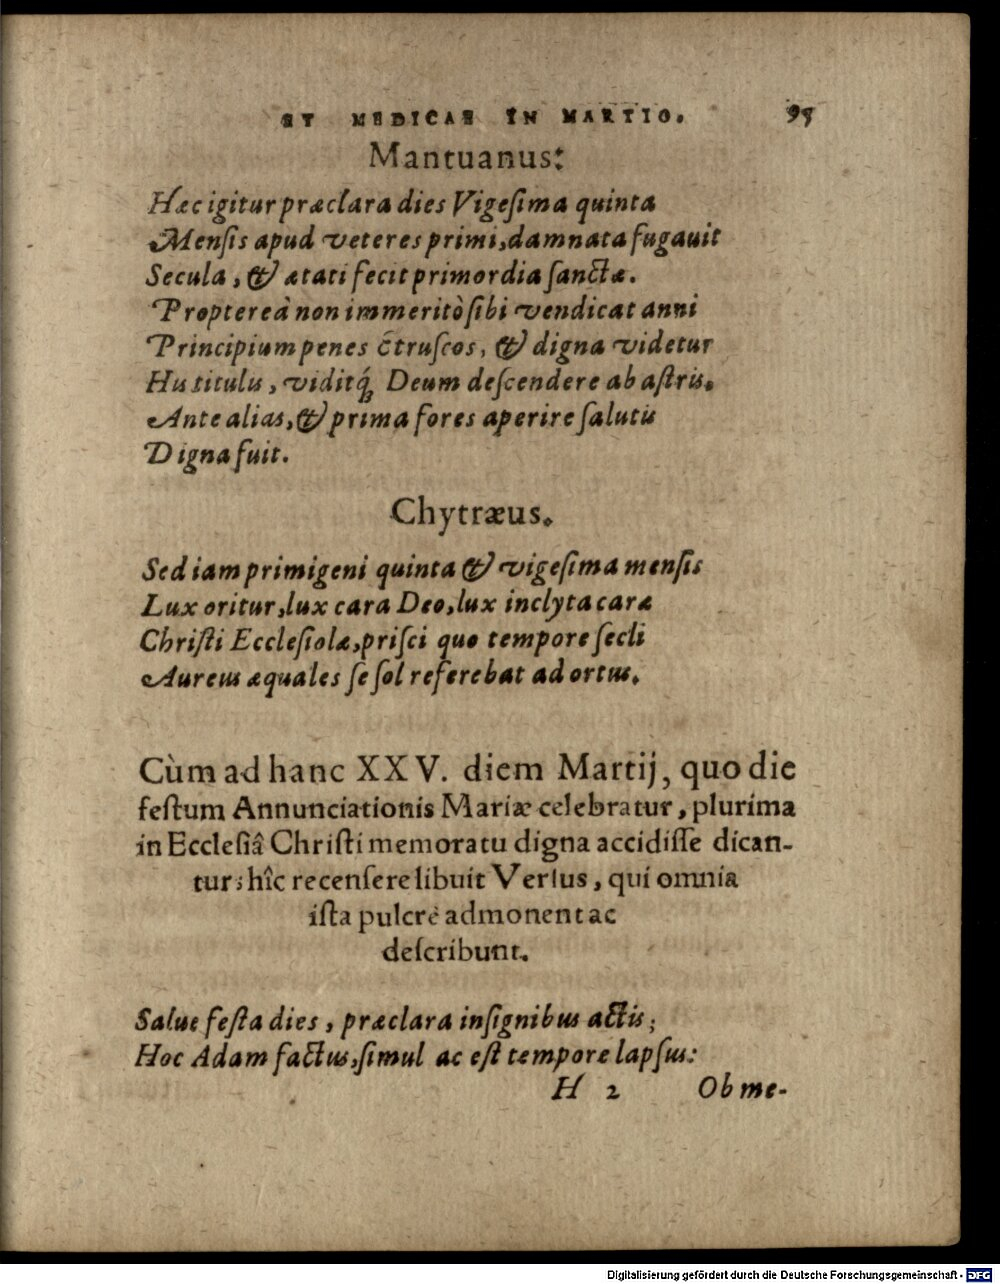 ET MEDICAE IN MARTIO. 95
Mantuanus:
Hæc igitur præclara dies Vigeſima quinta
Menſis apud veteres primi, damnata fugauit
Secula, & ætati fecit primordia ſanctæ.
Propterea̍ non immeritò ſibi vendicat anni
Principium penes Etruſcos, & digna videtur
His titulis, viditq́; Deum deſcendere ab aſtris.
Ante alias, & prima fores aperire ſalutis
Digna fuit.
Chytræus.
Sed iam primigeni quinta & vigeſima menſis
Lux oritur, lux cara Deo, lux inclyta caræ
Chriſti Eccleſiolæ, priſci quo tempore ſecli
Aureus æquales ſe ſol referebat ad ortus.
Cùm ad hanc XXV. diem Martij, quo die
feſtum Annunciationis Mariæ celebratur, plurima
in Eccleſiâ Chriſti memoratu digna accidiſſe dican-
tur: hîc recenſere libuit Verſus, qui omnia
iſta pulcrè admonent ac
deſcribunt.
Salue feſta dies, præclara inſignibus actis;
Hoc Adam factus, ſimul ac eſt tempore lapſus:
H 2 Ob me-
Digitalisierung gefördert durch die Deutsche Forschungsgemeinschaft - DFG